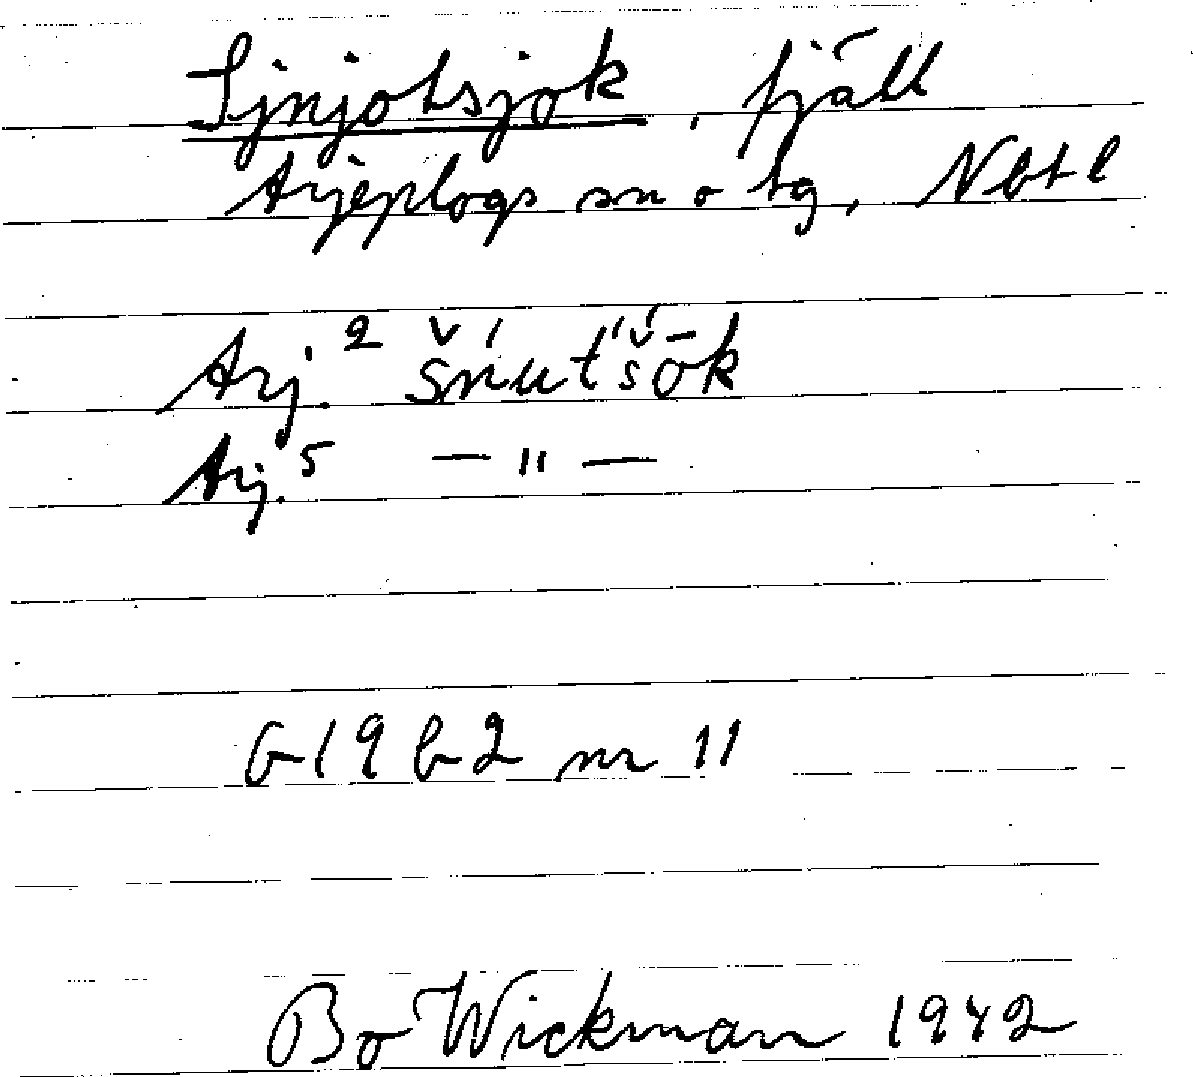 Sjnjotsjok, fjäll
Arjeplogs sn o tg, Nbtl
Arj.² šńut́š́ōk
Arj.⁵ — " —
G19b2 nr 11
Bo Wickman 1942